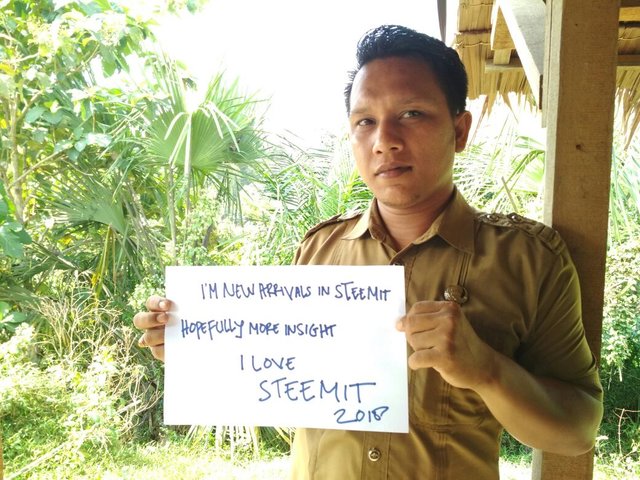 I'M NEW ARRIVALS IN STEEMIT
HOPEFULLY MORE INSIGHT
I LOVE
STEEMIT
2018